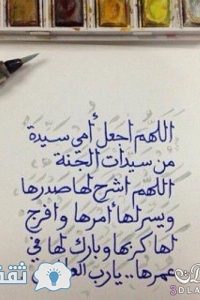 اللهم اجعل أمي سيدة
من سيدات الجنة
اللهم اشرح لها صدرها
ويسر لها أمرها وافرج
لها كربها وبارك لها في
عمرها .. يارب